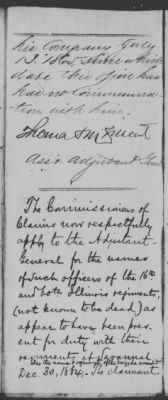 his Company July
13. 1865. Since which
date this office has
had no communica-
tion with him.
Thomas M. Vincent
Ass't Adjutant Gen'l
The Commissioners of
Claims now respectfully
apply to the Adjutant
General for the names
of such officers of the 16th
and 60th Illinois regiments,
(not known to be dead,) as
appear to have been pres-
ent for duty with their
regiments at Savannah
Also the names & regiments of the
Dec. 30, 1864. The claimant